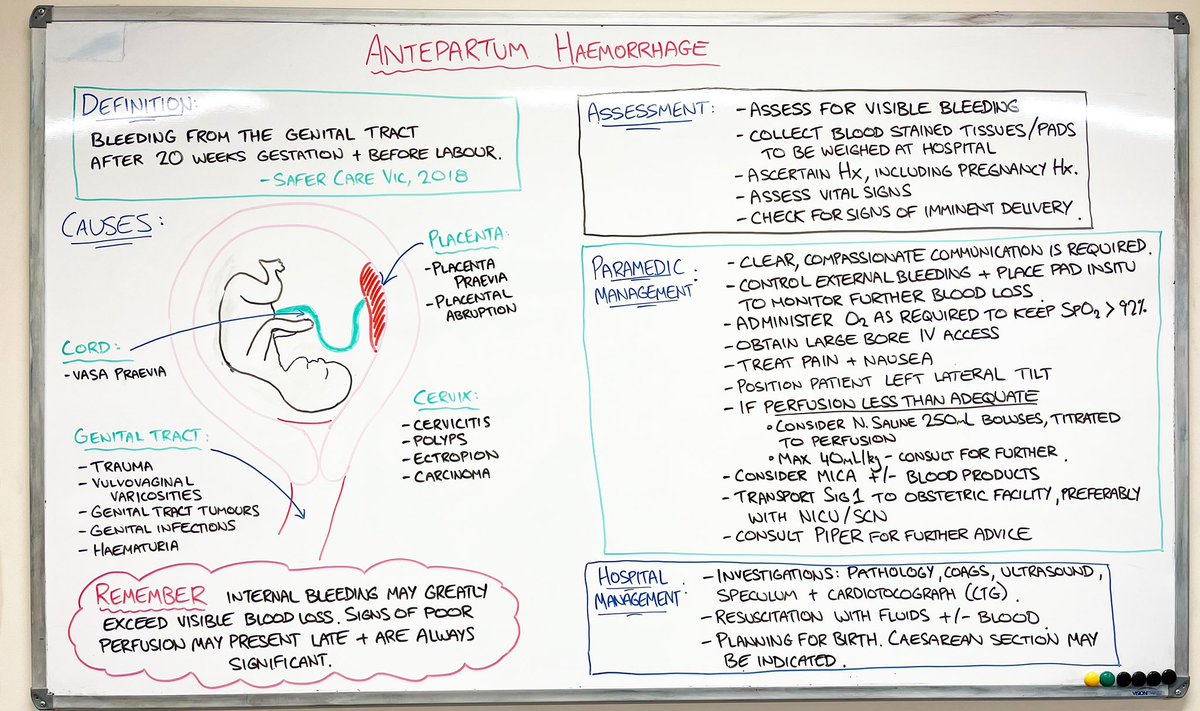 ANTEPARTUM HAEMORRHAGE
DEFINITION:
BLEEDING FROM THE GENITAL TRACT
AFTER 20 WEEKS GESTATION + BEFORE LABOUR.
- SAFER CARE VIC, 2018
CAUSES:
PLACENTA:
- PLACENTA
PRAEVIA
- PLACENTAL
ABRUPTION
CORD:
- VASA PRAEVIA
CERVIX:
- CERVICITIS
- POLYPS
- ECTROPION
- CARCINOMA
GENITAL TRACT:
- TRAUMA
- VULVOVAGINAL
VARICOSITIES
- GENITAL TRACT TUMOURS
- GENITAL INFECTIONS
- HAEMATURIA
REMEMBER INTERNAL BLEEDING MAY GREATLY
EXCEED VISIBLE BLOOD LOSS. SIGNS OF POOR
PERFUSION MAY PRESENT LATE + ARE ALWAYS
SIGNIFICANT.
ASSESSMENT: - ASSESS FOR VISIBLE BLEEDING
- COLLECT BLOOD STAINED TISSUES/PADS
TO BE WEIGHED AT HOSPITAL
- ASCERTAIN Hx, INCLUDING PREGNANCY Hx.
- ASSESS VITAL SIGNS
- CHECK FOR SIGNS OF IMMINENT DELIVERY.
PARAMEDIC MANAGEMENT:
- CLEAR, COMPASSIONATE COMMUNICATION IS REQUIRED.
- CONTROL EXTERNAL BLEEDING + PLACE PAD INSITU
TO MONITOR FURTHER BLOOD LOSS.
- ADMINISTER O₂ AS REQUIRED TO KEEP SPO₂ > 92%
- OBTAIN LARGE BORE IV ACCESS
- TREAT PAIN + NAUSEA
- POSITION PATIENT LEFT LATERAL TILT
- IF PERFUSION LESS THAN ADEQUATE
◦ CONSIDER N. SALINE 250mL BOLUSES, TITRATED
TO PERFUSION
◦ MAX 40mL/kg - CONSULT FOR FURTHER.
- CONSIDER MICA +/- BLOOD PRODUCTS
- TRANSPORT SIG 1 TO OBSTETRIC FACILITY, PREFERABLY
WITH NICU/SCN
- CONSULT PIPER FOR FURTHER ADVICE
HOSPITAL MANAGEMENT:
- INVESTIGATIONS: PATHOLOGY, COAGS, ULTRASOUND,
SPECULUM + CARDIOTOCOGRAPH (CTG).
- RESUSCITATION WITH FLUIDS +/- BLOOD.
- PLANNING FOR BIRTH. CAESAREAN SECTION MAY
BE INDICATED.